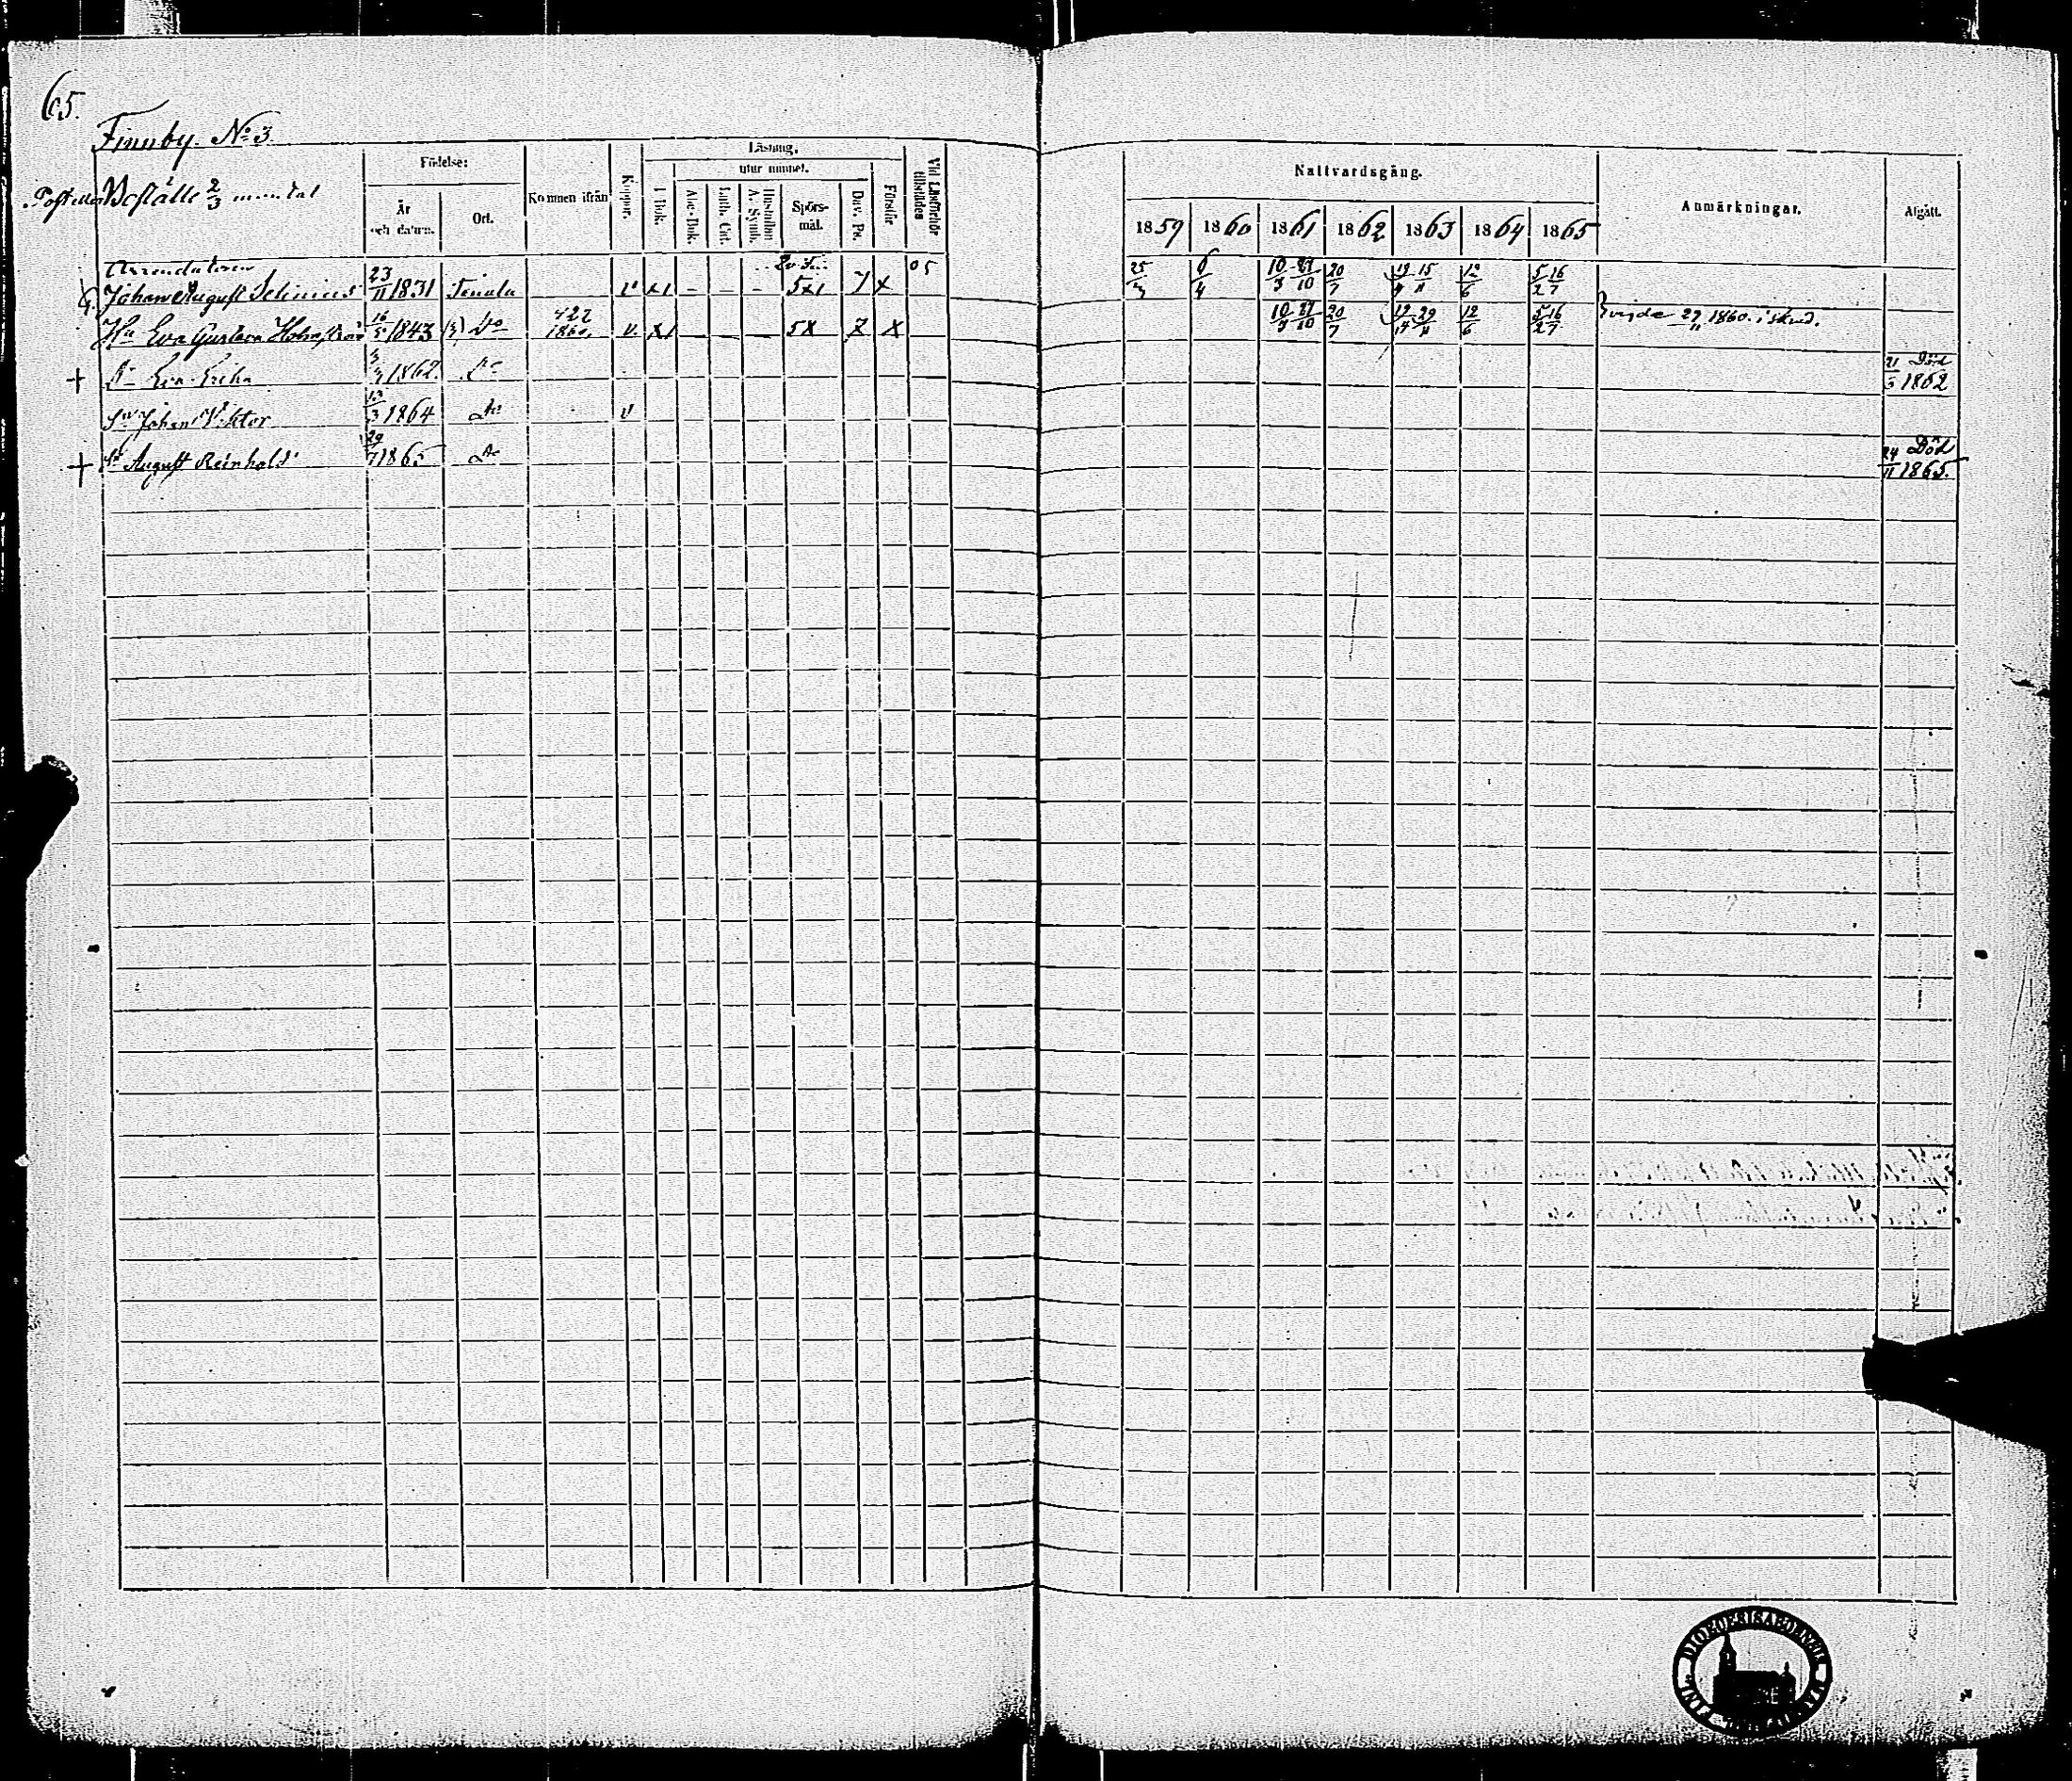 65.
Finnby. No 3.
Boställe 2/3 mantal
Födelse:
År och datum.
Ort.
Kommen ifrån
Koppor.
Läsning.
I Bok.
utur minnet.
Abc-Bok.
Luth. Cat.
A. Symb.
Spörsmål.
Dav. Ps.
Förstår
Nattvardsgång.
1859 1860 1861 1862 1863 1864 1865
Anmärkningar.
Afgått.
Arrendatoren 05
Johan August Selinius 23/11 1831 Tenala v x1 - - - 5x1 7 x 6/4 10/3 27/10 20/7 12/6 5/2 16/7
Hu Eva Gustava 16/5 1843 Do 422 1860. v x1 5x 7 x 10/3 27/10 20/7 29/11 12/6 5/2 16/7 vigde 29/11 1860.
Dr Eva Erika 1862 Do 21/5 Död 1862
Sn Johan Viktor 13/3 1864 Do v
Sn August Reinhold 29/7 1865 Do 24/11 Död 1865.